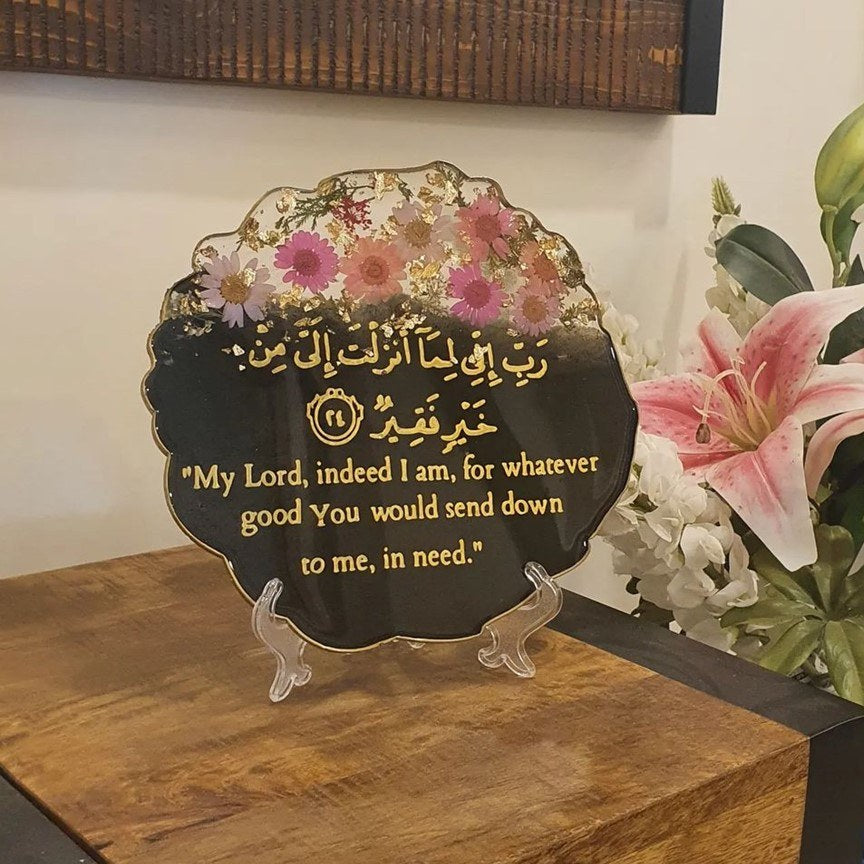 رَبِّ إِنِّي لِمَآ أَنزَلْتَ إِلَىَّ مِنْ
خَيْرٍ فَقِيرٌ ٢٤
"My Lord, indeed I am, for whatever
good You would send down
to me, in need."